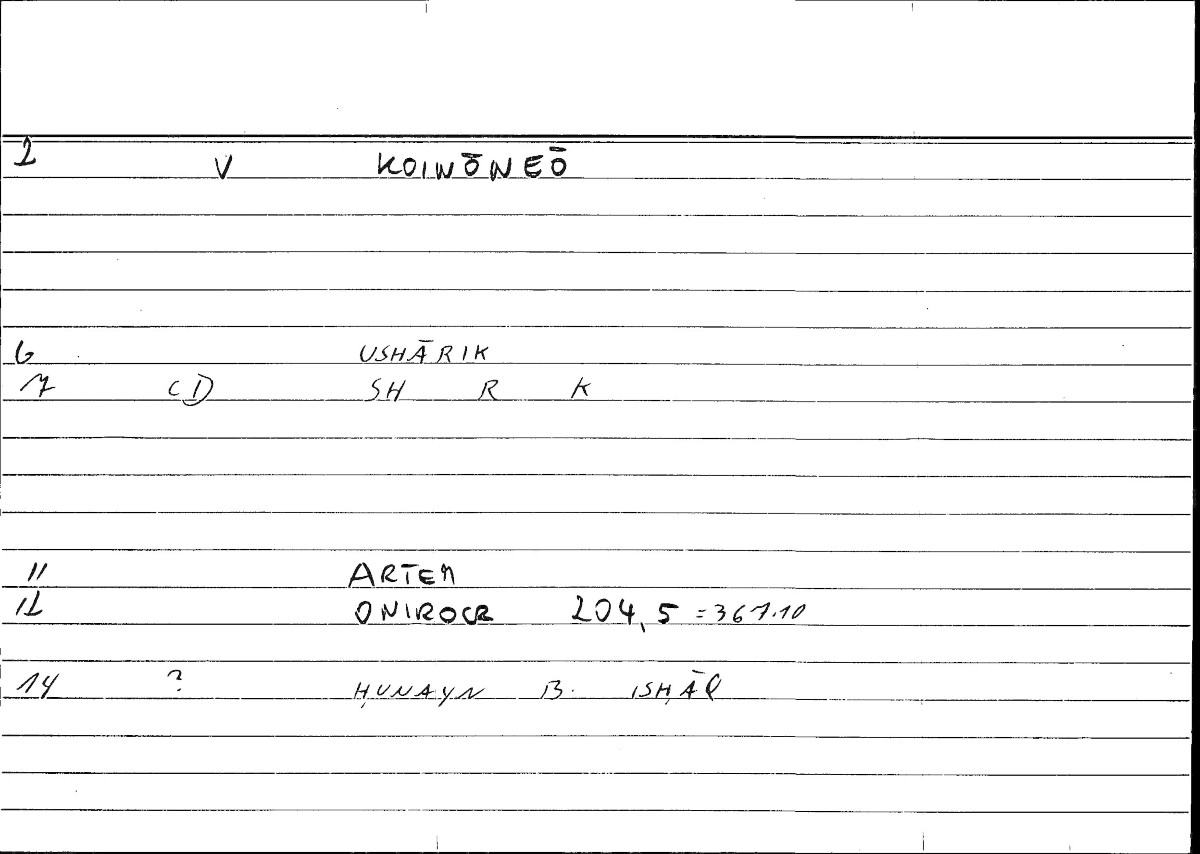 2 V KOINŌNEŌ
6 USHĀRIK
7 CD SH R K
11 ARTEM
12 ONIROCR 204,5 = 367.10
14 ? ḤUNAYN B. ISḤĀQ